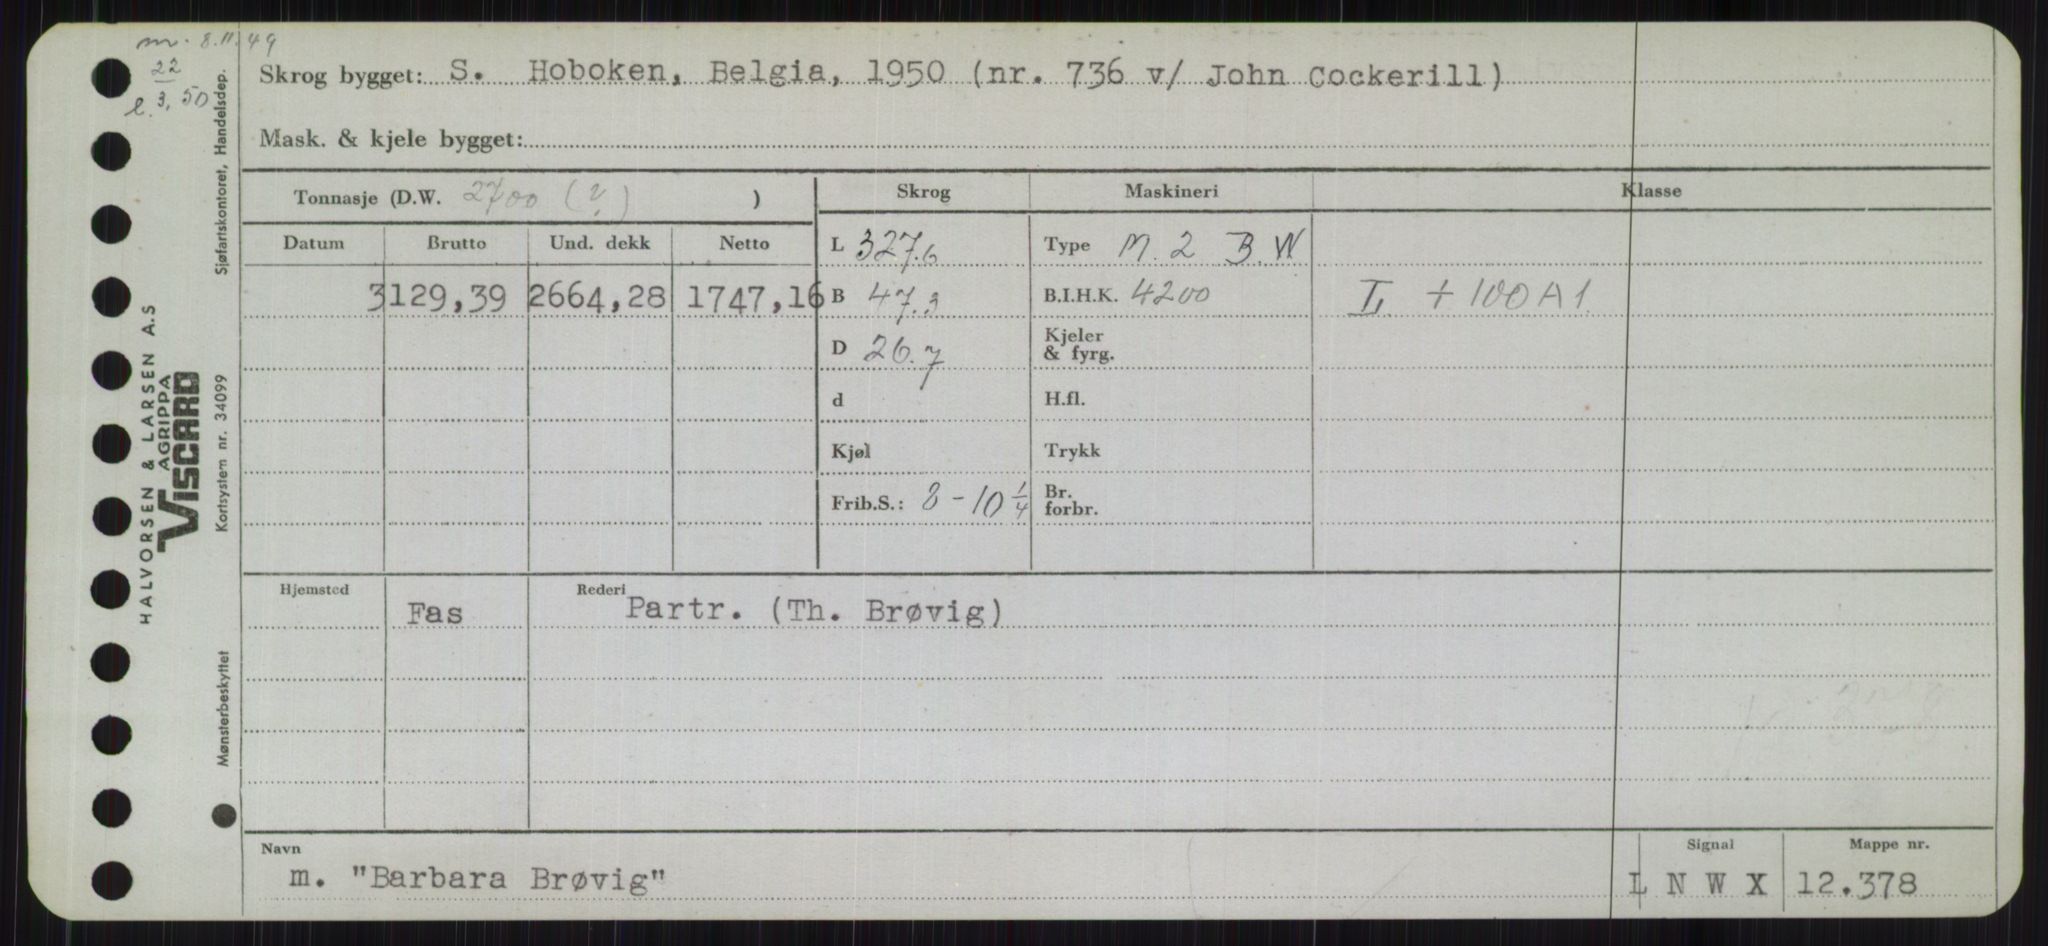 m. 8.11.49
22
l. 3, 50
Skrog bygget: S. Hoboken, Belgia, 1950 (nr. 736 v/ John Cockerill)
Mask. & kjele bygget:
Tonnasje (D.W. 2700 (?) )
Skrog Maskineri Klasse
Datum Brutto Und. dekk Netto
L 327.6 Type M. 2 B.W
3129,39 2664,28 1747,16 B 47.3 B.I.H.K. 4200 L + 100A1.
D 26.7 Kjeler & fyrg.
d H.fl.
Kjøl Trykk
Frib.S.: 8-10 1/4 Br. forbr.
Hjemsted Rederi
Fas Partr. (Th. Brøvig)
Navn Signal Mappe nr.
m. "Barbara Brøvig" L N W X 12.378
HALVORSEN & LARSEN A.S
AGRIPPA
VISCARD
Sjøfartskontoret, Handelsdep.
Kortsystem nr. 34099
Mønsterbeskyttet